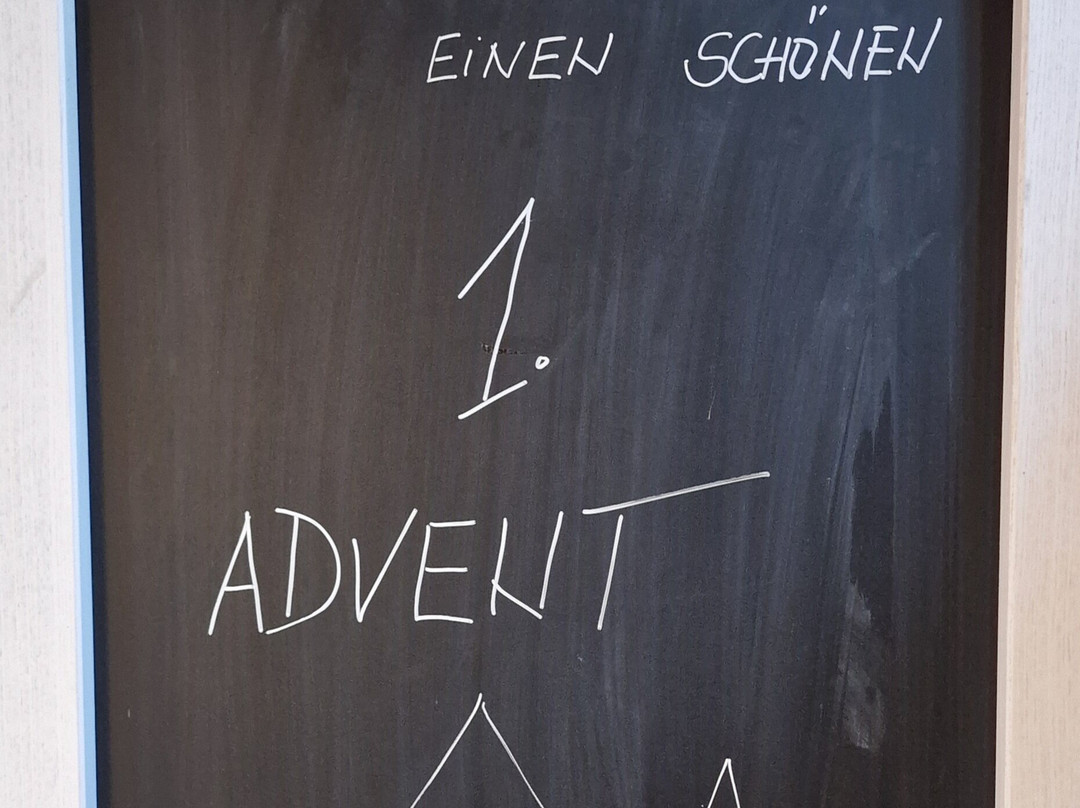 EiNEN SCHÖNEN
1.
ADVENT